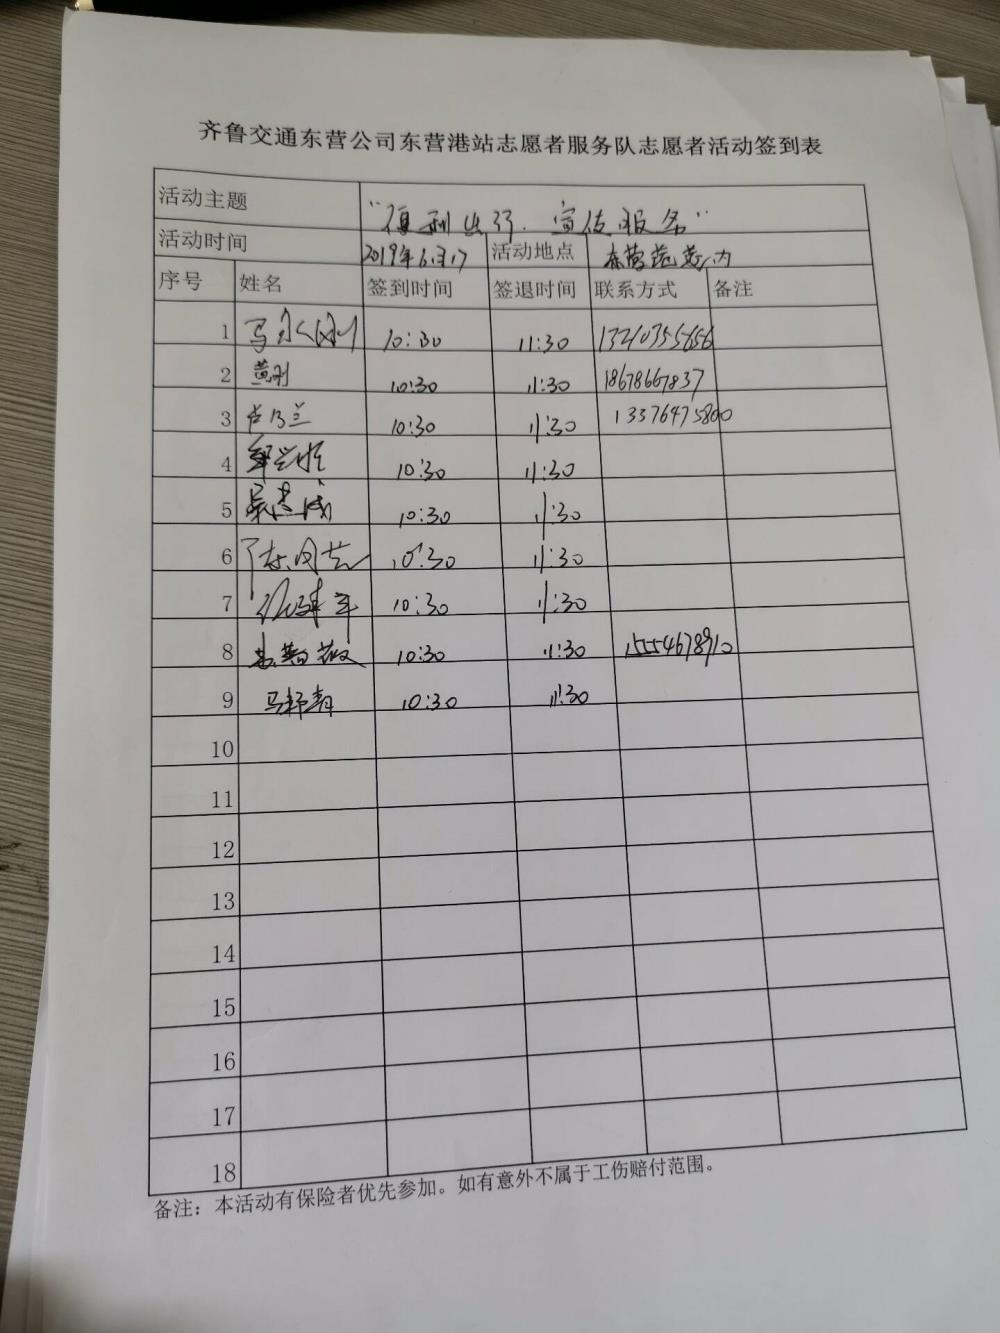 齐鲁交通东营公司东营港站志愿者服务队志愿者活动签到表
活动主题 “便利出行.宣传服务”
活动时间 2019年6月17 活动地点 东营港
序号 姓名 签到时间 签退时间 联系方式 备注
1 马永刚 10:30 11:30 13210755656
2 黄刚 10:30 11:30 18678667837
3 10:30 11:30 13376475800
4 10:30 11:30
5 10:30 11:30
6 10:30 11:30
7 10:30 11:30
8 10:30 11:30 15554678910
9 马静 10:30 11:30
10
11
12
13
14
15
16
17
18
备注：本活动有保险者优先参加。如有意外不属于工伤赔付范围。